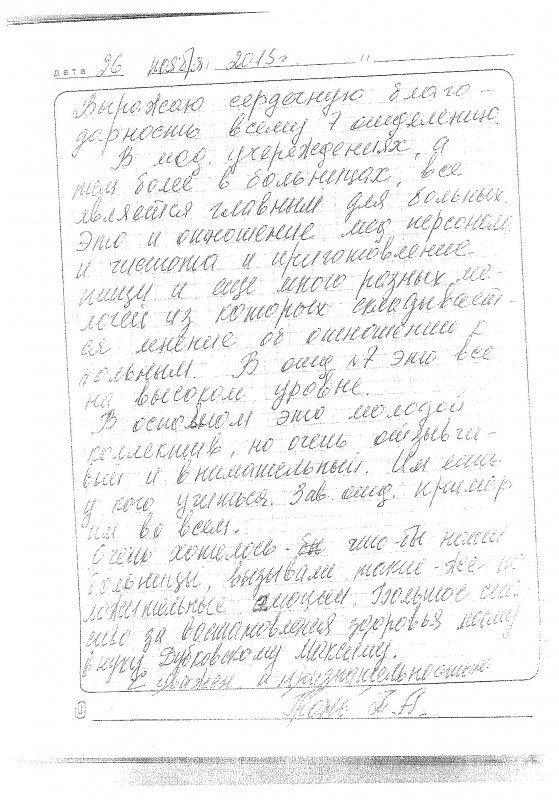 дата 26 ноября 2015 г. "
Выражаю сердечную благо-
дарность всему 7 отделению.
В мед. учереждениях, а
тем более в больницах, все
является главным для больных.
Это и отношение мед. персонала
и чистота и приготовление
пищи и еще много разных ме-
лочей из которых складывает-
ся мнение об отношении к
больным. В отд №7 это все
на высоком уровне.
В основном это молодой
коллектив, но очень отзывчи-
вый и внимательный. Им есть
у кого учиться. Зав. отд. пример
им во всем.
Очень хотелось-бы что-бы наши
больницы, вызывали такие-же по-
ложительные эмоции. Большое спа-
сибо за востановления здоровья моему
внуку Дубковскому Максиму.
С уважен. и признательностью